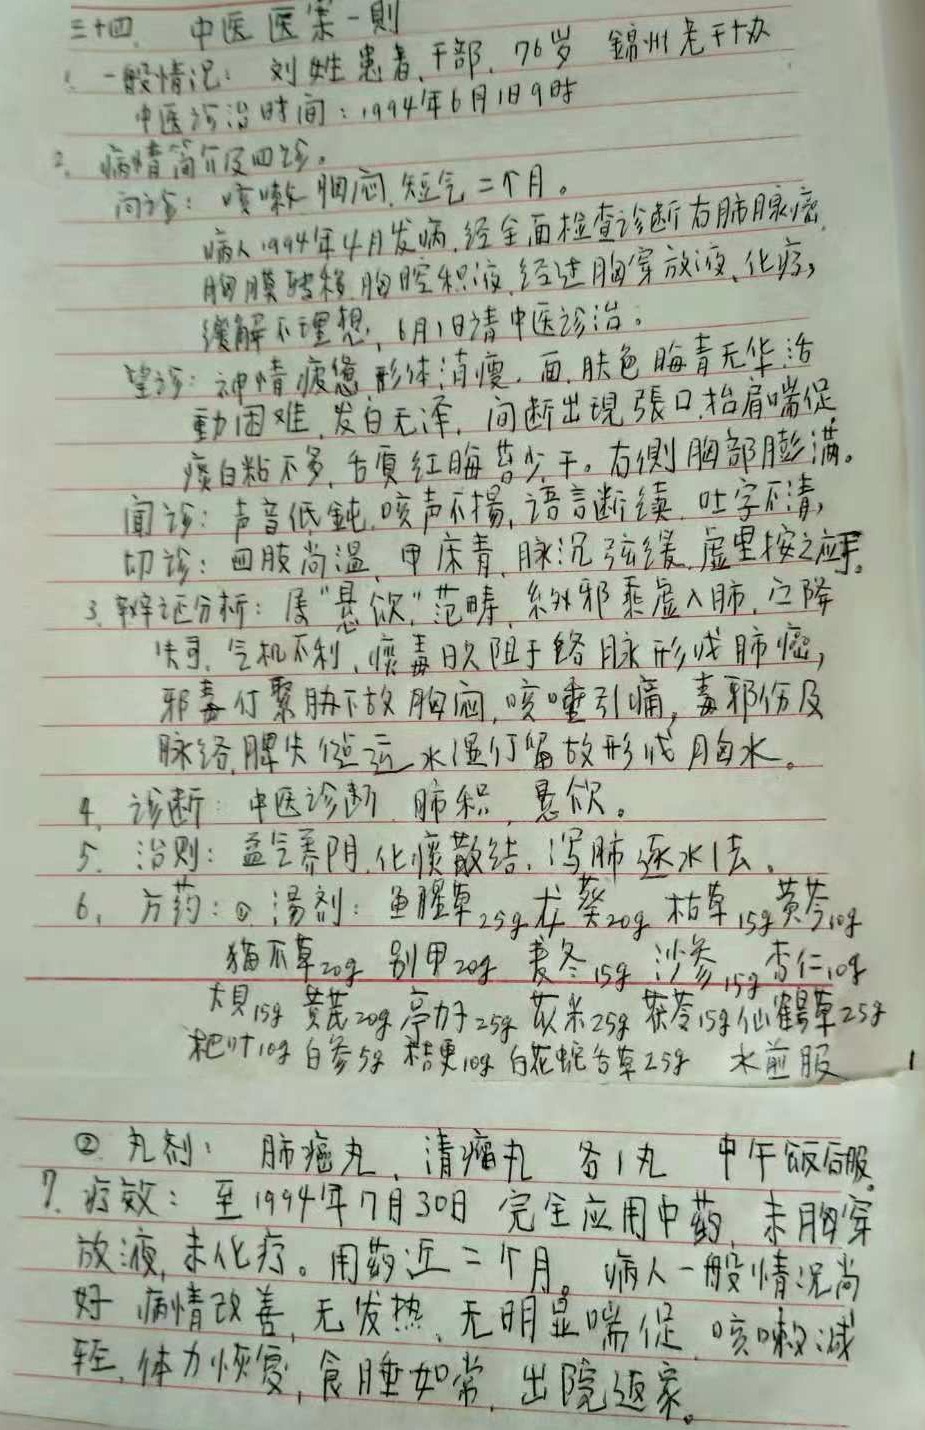 三十四、中医医案一则
1. 一般情况: 刘姓患者、干部、76岁 錦州老干部
中医诊治时间: 1994年6月1日9时
2. 病情简介及四诊。
问诊: 咳嗽胸闷、短气二个月。
病人1994年4月发病、经全面检查诊断右肺腺癌、
胸膜转移、胸腔积液、经过胸穿放液、化疗,
缓解不理想、6月1日请中医诊治。
望诊: 神情疲惫 形体消瘦、面、肤色晦青无华、活
動困难、发白无泽、间断出現張口抬肩喘促
痰白粘不多、舌质红晦苔少干。右側胸部膨满。
闻诊: 声音低鈍、咳声不揚、語言断续、吐字不清,
切诊: 四肢尚温、甲床青、脉沉弦缓、虚里按之应手。
3. 辩证分析: 属“悬饮”范畴、系外邪乘虚入肺、宣降
失司、气机不利、痰毒日久阻于络脉形成肺癌,
邪毒仃聚胁下故胸闷、咳唾引痛, 毒邪伤及
脉络、脾失健运 水湿仃留故形成胸水。
4. 诊断: 中医诊断 肺积、悬饮。
5. 治则: 益气养阴、化痰散结、泻肺逐水法、
6. 方药: ① 湯剂: 鱼腥草25g 龙葵20g 枯草15g 黄芩10g
猫爪草20g 别甲20g 麦冬15g 沙参15g 杏仁10g
大貝15g 黄芪20g 亭力子25g 苡米25g 茯苓15g 仙鶴草25g
杷叶10g 白参5g 桔更10g 白花蛇舌草25g 水煎服
② 丸剂: 肺癌丸、清瘤丸 各1丸 中午飯后服。
7. 疗效: 至1994年7月30日 完全应用中药、未胸穿
放液、未化疗。用药近二个月。病人一般情况尚
好 病情改善、无发热、无明显喘促、咳嗽减
轻、体力恢复, 食睡如常、出院返家。